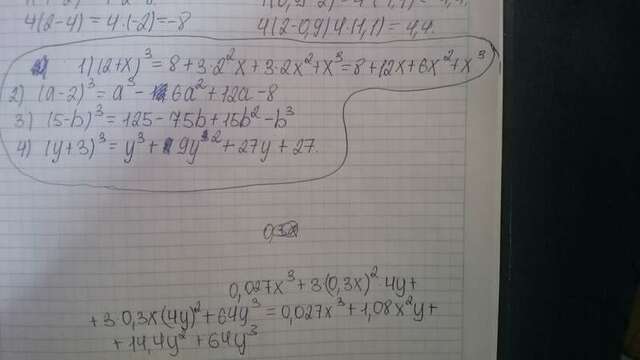 4(2-4)=4·(-2)=-8
1) (2+x)³=8+3·2²x+3·2x²+x³=8+12x+6x²+x³
2) (a-2)³=a³-6a²+12a-8
3) (5-b)³=125-75b+15b²-b³
4) (y+3)³=y³+9y²+27y+27.
0,027x³+3(0,3x)²4y+
+3·0,3x(4y)²+64y³=0,027x³+1,08x²y+
+14,4y²+64y³